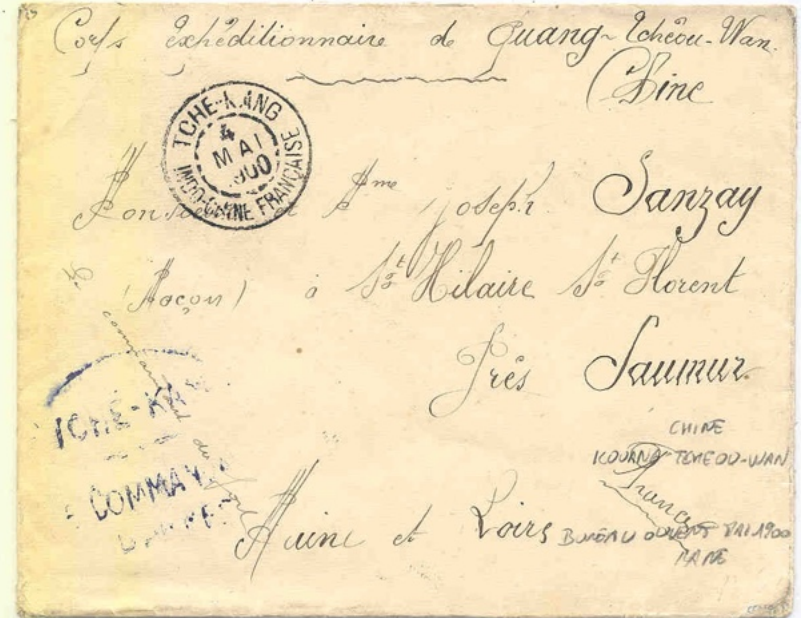 Corps Expéditionnaire de Quang-Tchéou-Wan.
Chine
TCHE-KANG
4
MAI
1900
INDO-CHINE FRANÇAISE
Mme Joseph Sanzay
(Maçon) à St Hilaire St Florent
Près Saumur
Le commandant du
TCHÉ-KA
COMMA
CHINE
KOUANG TCHEOU-WAN
France
Maine et Loire
BUREAU OUVERT MAI 1900
RARE